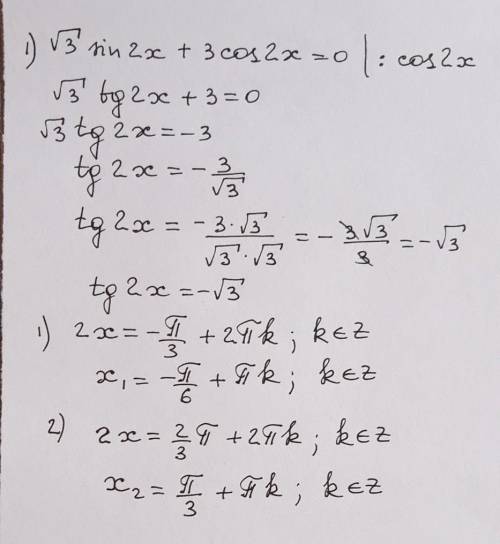 1) √3 sin 2x + 3 cos 2x = 0 | : cos 2x
√3 tg 2x + 3 = 0
√3 tg 2x = -3
tg 2x = - 3/√3
tg 2x = - 3·√3/√3·√3 = - 3√3/3 = -√3
tg 2x = -√3
1) 2x = -π/3 + 2πk ; k∈z
x₁ = -π/6 + πk ; k∈z
2) 2x = 2/3 π + 2πk ; k∈z
x₂ = π/3 + πk ; k∈z